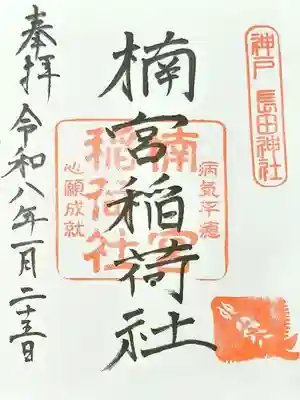 神戸 長田神社
楠宮稲荷社
楠宮
稲荷社
病気平癒
心願成就
奉拝
令和八年一月二十五日